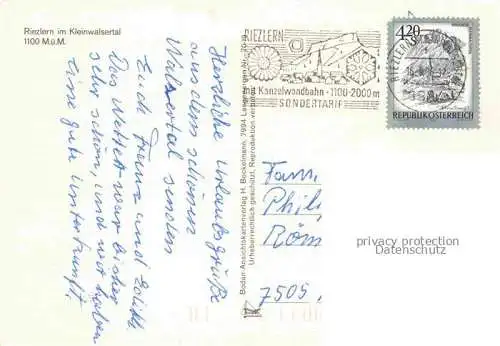 Rinzlern im Kleinwalsertal
1100 M.ü.M.
Herzliche Urlaubsgrüße
aus dem schönen
Walsertal senden
Euch Franz und
Das Wetter war bisher
sehr schön, und wir haben
eine gute Unterkunft.
Bodan-Ansichtskartenverlag H. Bockelmann, 7994
Urheberrechtlich geschützt, Reproduktion verboten
RIEZLERN
mit Kanzelwandbahn · 1100-2000 m
SONDERTARIF
4.20
REPUBLIK ÖSTERREICH
RIEZLERN
Fam.
Phil
Röm
7505
privacy protection
Datenschutz